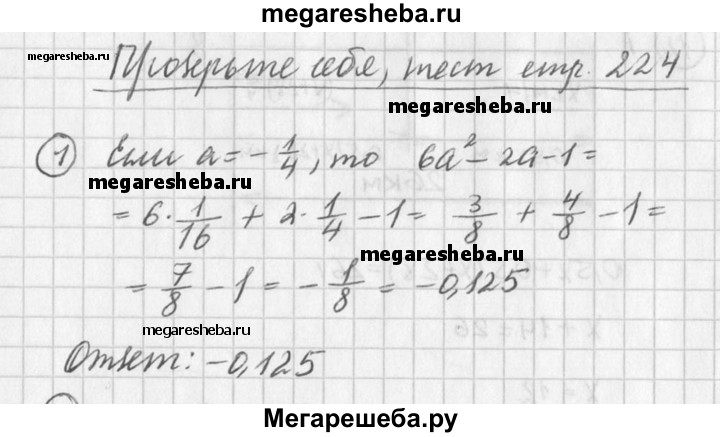 megaresheba.ru
megaresheba.ru
Проверьте себя, тест стр. 224
megaresheba.ru
1 Если a = -1/4, то 6a² - 2a - 1 =
megaresheba.ru
= 6 · 1/16 + 2 · 1/4 - 1 = 3/8 + 4/8 - 1 =
megaresheba.ru
= 7/8 - 1 = -1/8 = -0,125
megaresheba.ru
Ответ: -0,125
Мегарешеба.ру